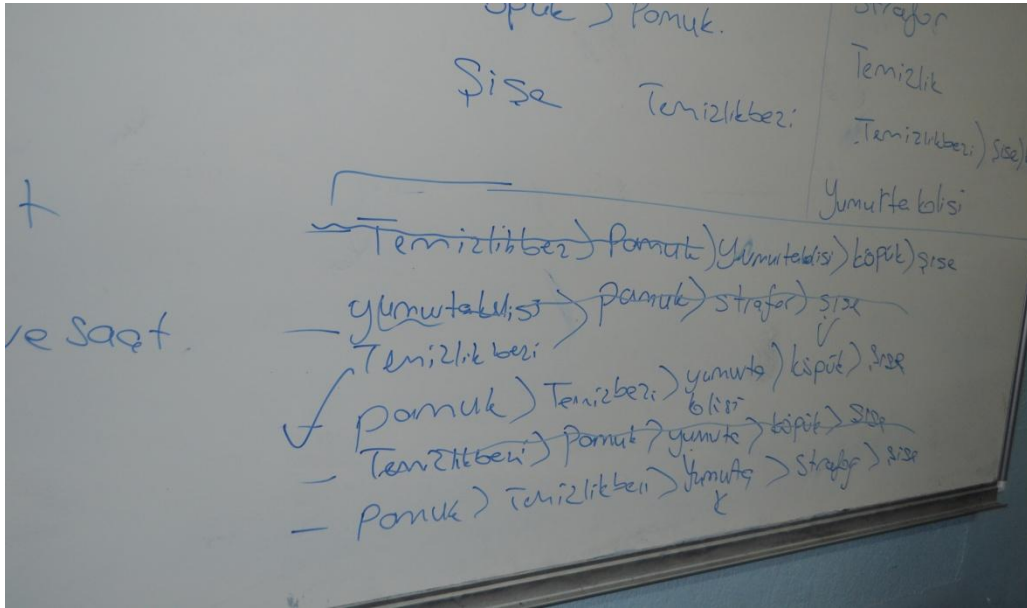 öpük > Pamuk.
Strafor
Şişe Temizlikbezi
Temizlik
Temizlikbezi > Şişe >
Yumurta kolisi
t
Temizlikbez > Pamuk > Yumurtakolisi > köpük > şişe
yumurtakolisi > pamuk > strafor > şişe
ve saat
Temizlik bezi
✓ pamuk > Temizbezi > yumurta kolisi > köpük > şişe
- Temizlikbezi > Pamuk > yumurta > köpük > şişe
- Pamuk > Temizlikbezi > Yumurta K > Strafor > şişe